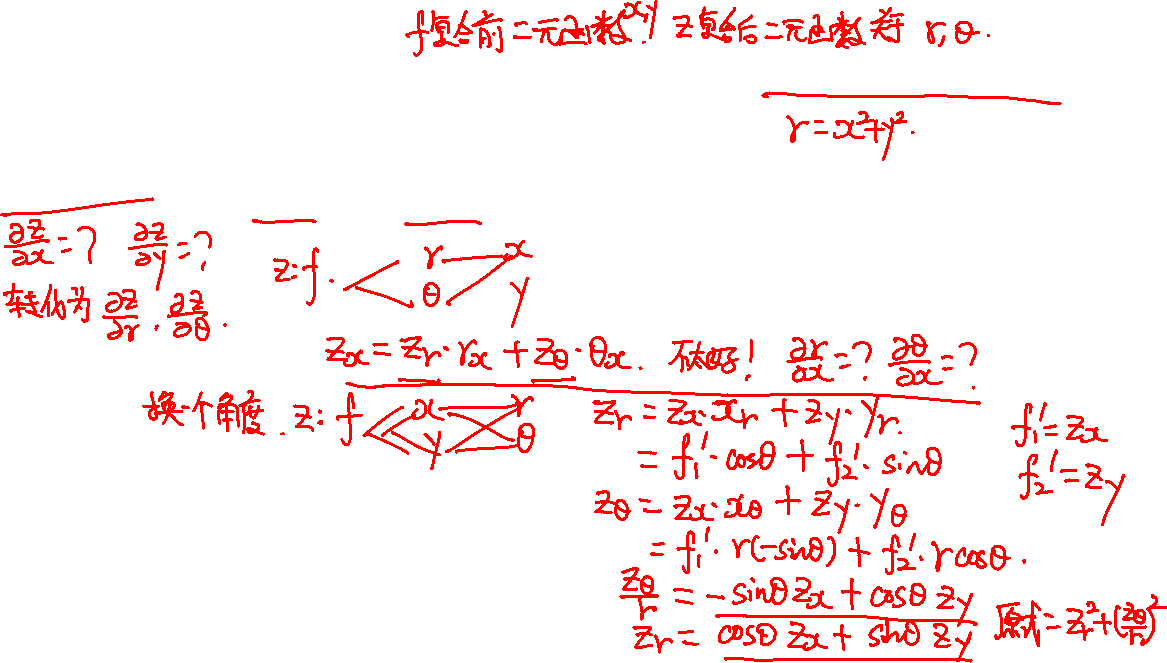 f复合前二元函数x,y z复合后二元函数关于 r,θ.
r=x²+y².
∂z/∂x=? ∂z/∂y=?
转化为 ∂z/∂r, ∂z/∂θ.
z:f. r x
θ y
z_x = z_r·r_x + z_θ·θ_x. 不太好! ∂r/∂x=? ∂θ/∂x=?
换个角度. z: f x r
y θ
z_r = z_x·x_r + z_y·y_r.
= f₁'·cosθ + f₂'·sinθ
f₁'=z_x
f₂'=z_y
z_θ = z_x·x_θ + z_y·y_θ
= f₁'·r(-sinθ) + f₂'·rcosθ.
z_θ/r = -sinθ z_x + cosθ z_y
z_r = cosθ z_x + sinθ z_y
原式=z_r²+(z_θ/r)²